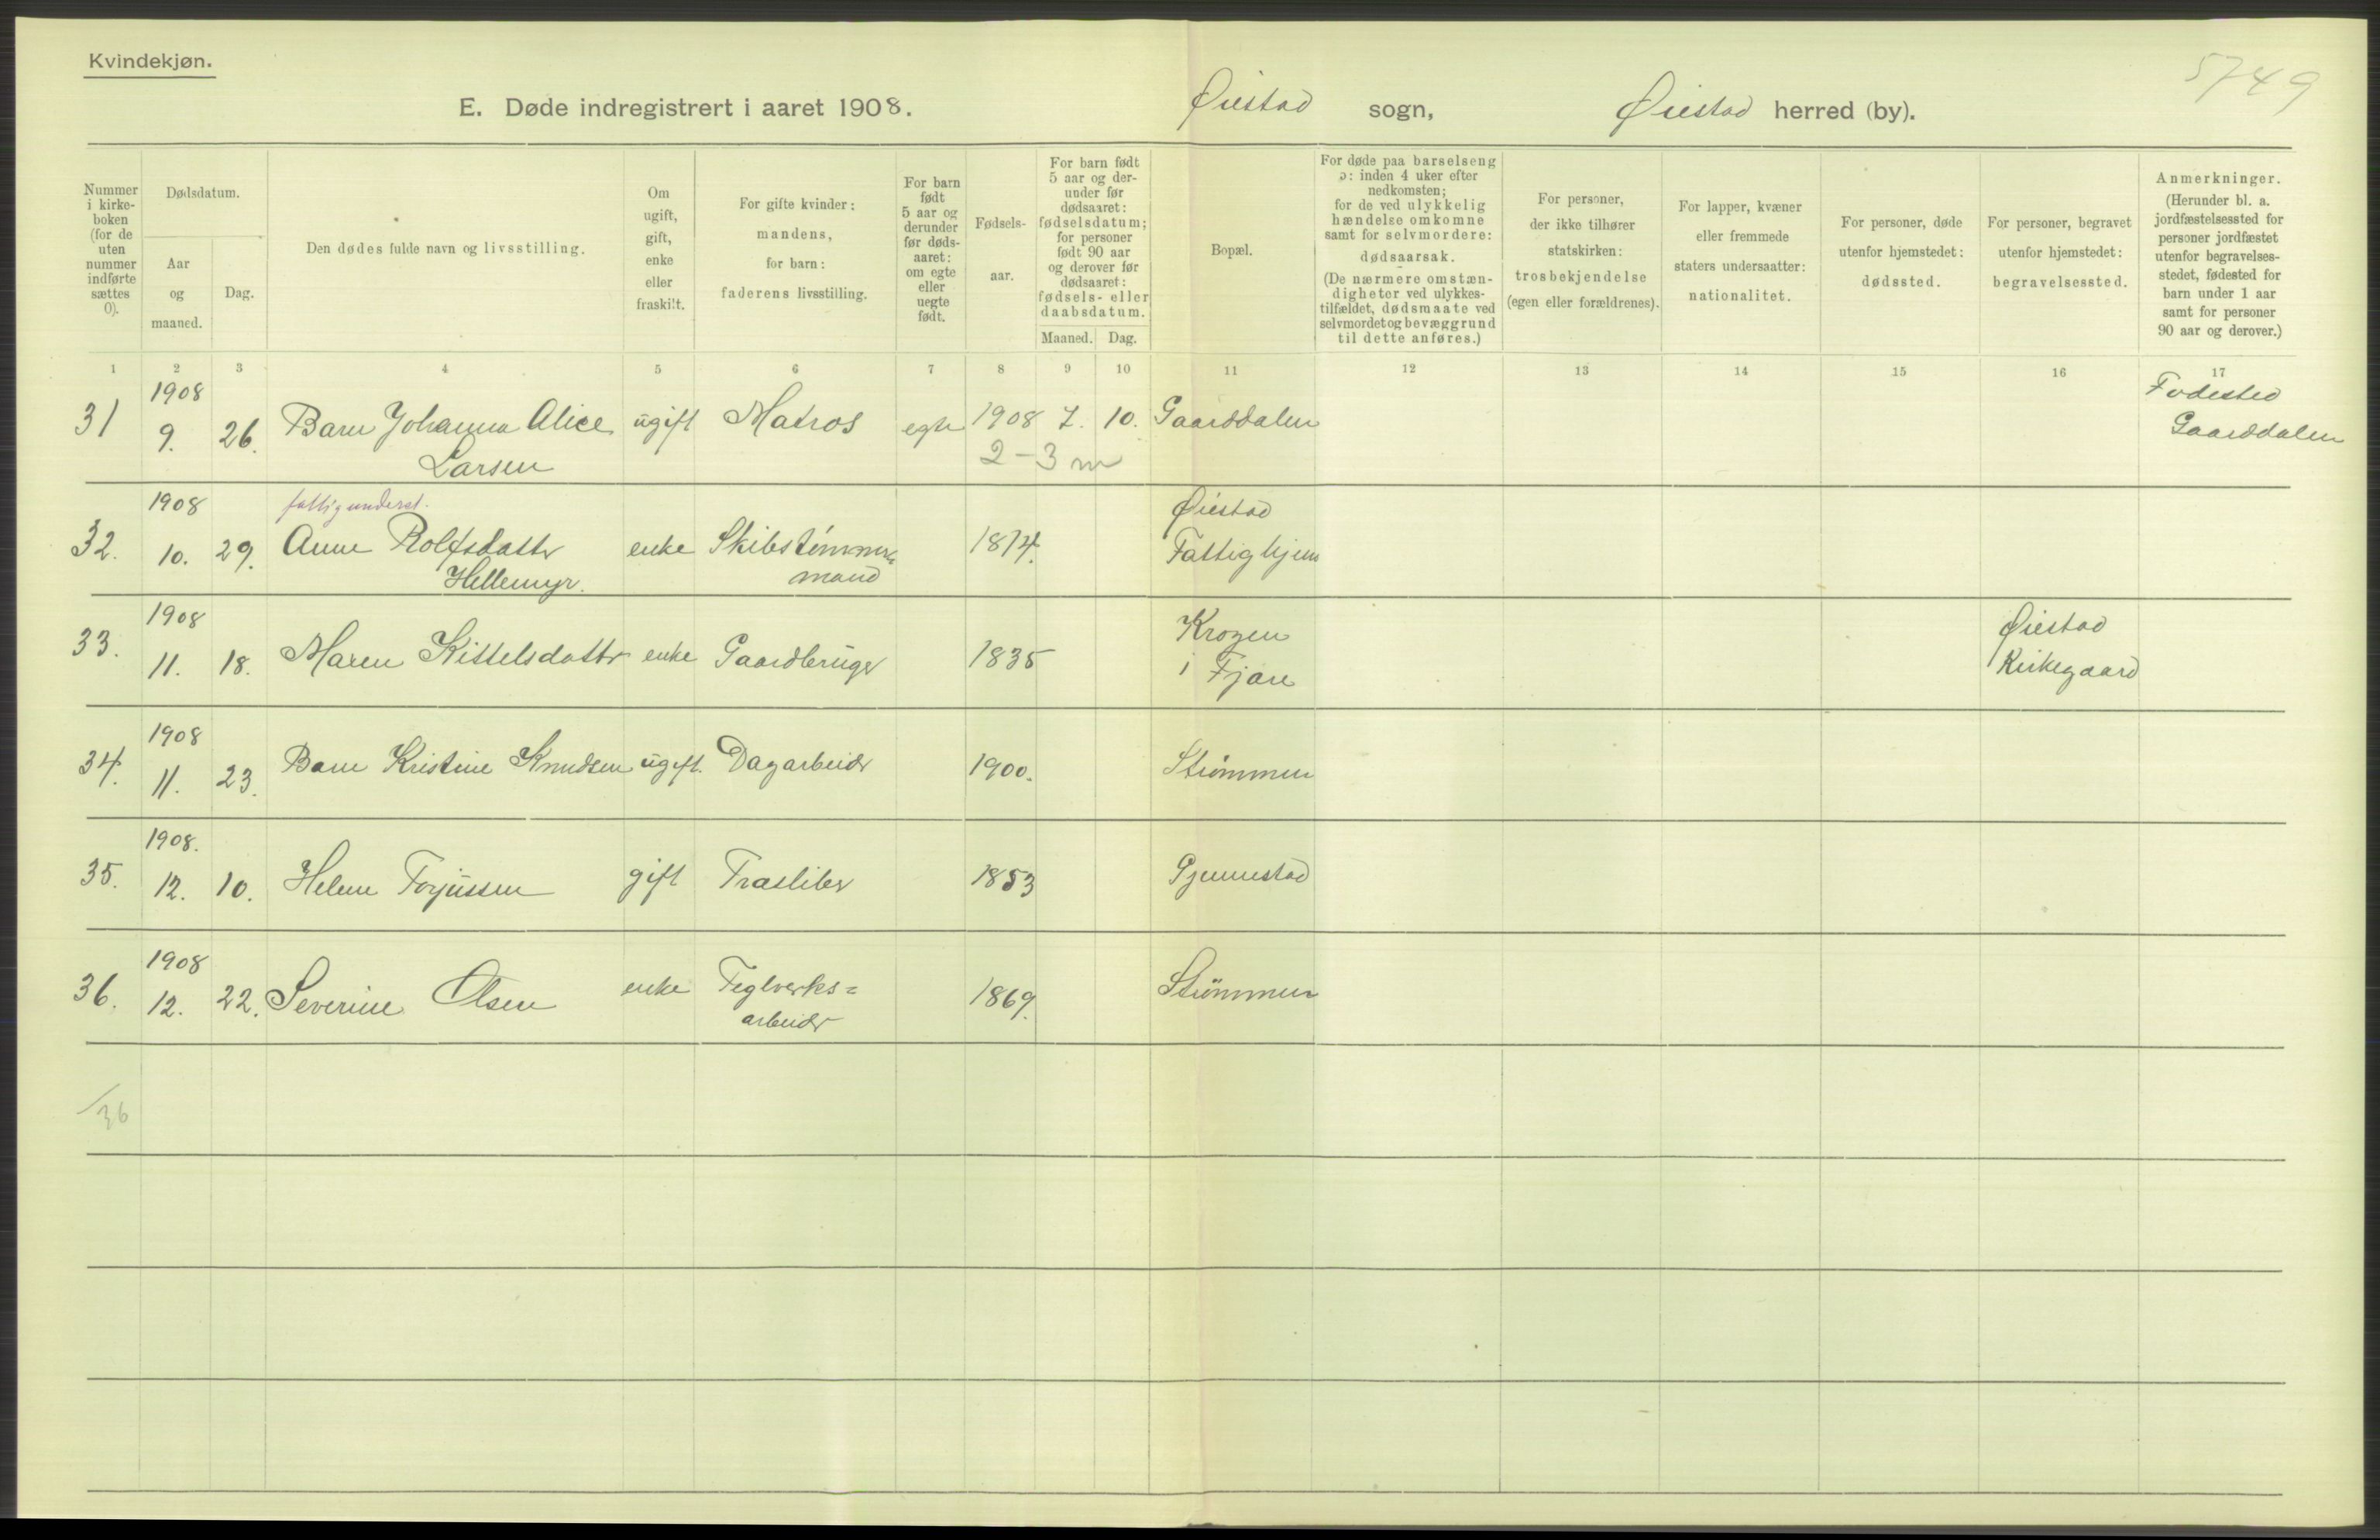 Kvindekjøn.
5749
E. Døde indregistrert i aaret 1908.
Øiestad sogn,
Øiestad herred (by).
Nummer i kirke-boken (for de uten nummer indførte sættes 0).
Dødsdatum.
Aar og maaned.
Dag.
Den dødes fulde navn og livsstilling.
Om ugift, gift, enke eller fraskilt.
For gifte kvinder: mandens, for barn: faderens livsstilling.
For barn født 5 aar og derunder før døds-aaret: om egte eller uegte født.
Fødsels-aar.
For barn født 5 aar og der-under før dødsaaret: fødselsdatum; for personer født 90 aar og derover før dødsaaret: fødsels- eller daabsdatum.
Maaned.
Dag.
Bopæl.
For døde paa barselseng ɔ: inden 4 uker efter nedkomsten; for de ved ulykkelig hændelse omkomne samt for selvmordere: dødsaarsak.
(De nærmere omstæn-digheter ved ulykkes-tilfældet, dødsmaate ved selvmordet og bevæggrund til dette anføres.)
For personer, der ikke tilhører statskirken: trosbekjendelse (egen eller forældrenes).
For lapper, kvæner eller fremmede staters undersaatter: nationalitet.
For personer, døde utenfor hjemstedet: dødssted.
For personer, begravet utenfor hjemstedet: begravelsessted.
Anmerkninger.
(Herunder bl. a. jordfæstelsessted for personer jordfæstet utenfor begravelses-stedet, fødested for barn under 1 aar samt for personer 90 aar og derover.)
1 2 3 4 5 6 7 8 9 10 11 12 13 14 15 16 17
1908
31 9. 26. Barn Johanna Alice ugift Matros egte 1908 7. 10. Gaarddalen Fødested
Larsen 2-3 m Gaarddalen
1908 fattigunderst. Øiestad
32. 10. 29. Anne Rolfsdattr enke Skibstømmer 1814. Fattighjem
Hellemyr. mand
1908 Krogen Øiestad
33. 11. 18. Maren Kittelsdattr enke Gaardbruger 1835 i Fjære Kirkegaard
1908
34. 11. 23. Barn Kristine Knudsen ugift. Dagarbeider 1900. Strømmen
1908.
35. 12. 10. Helene Torjussen gift Træsliber 1853 Gjennestad
1908
36. 12. 22. Severine Olsen enke Teglverks= 1869. Strømmen
arbeider
/36